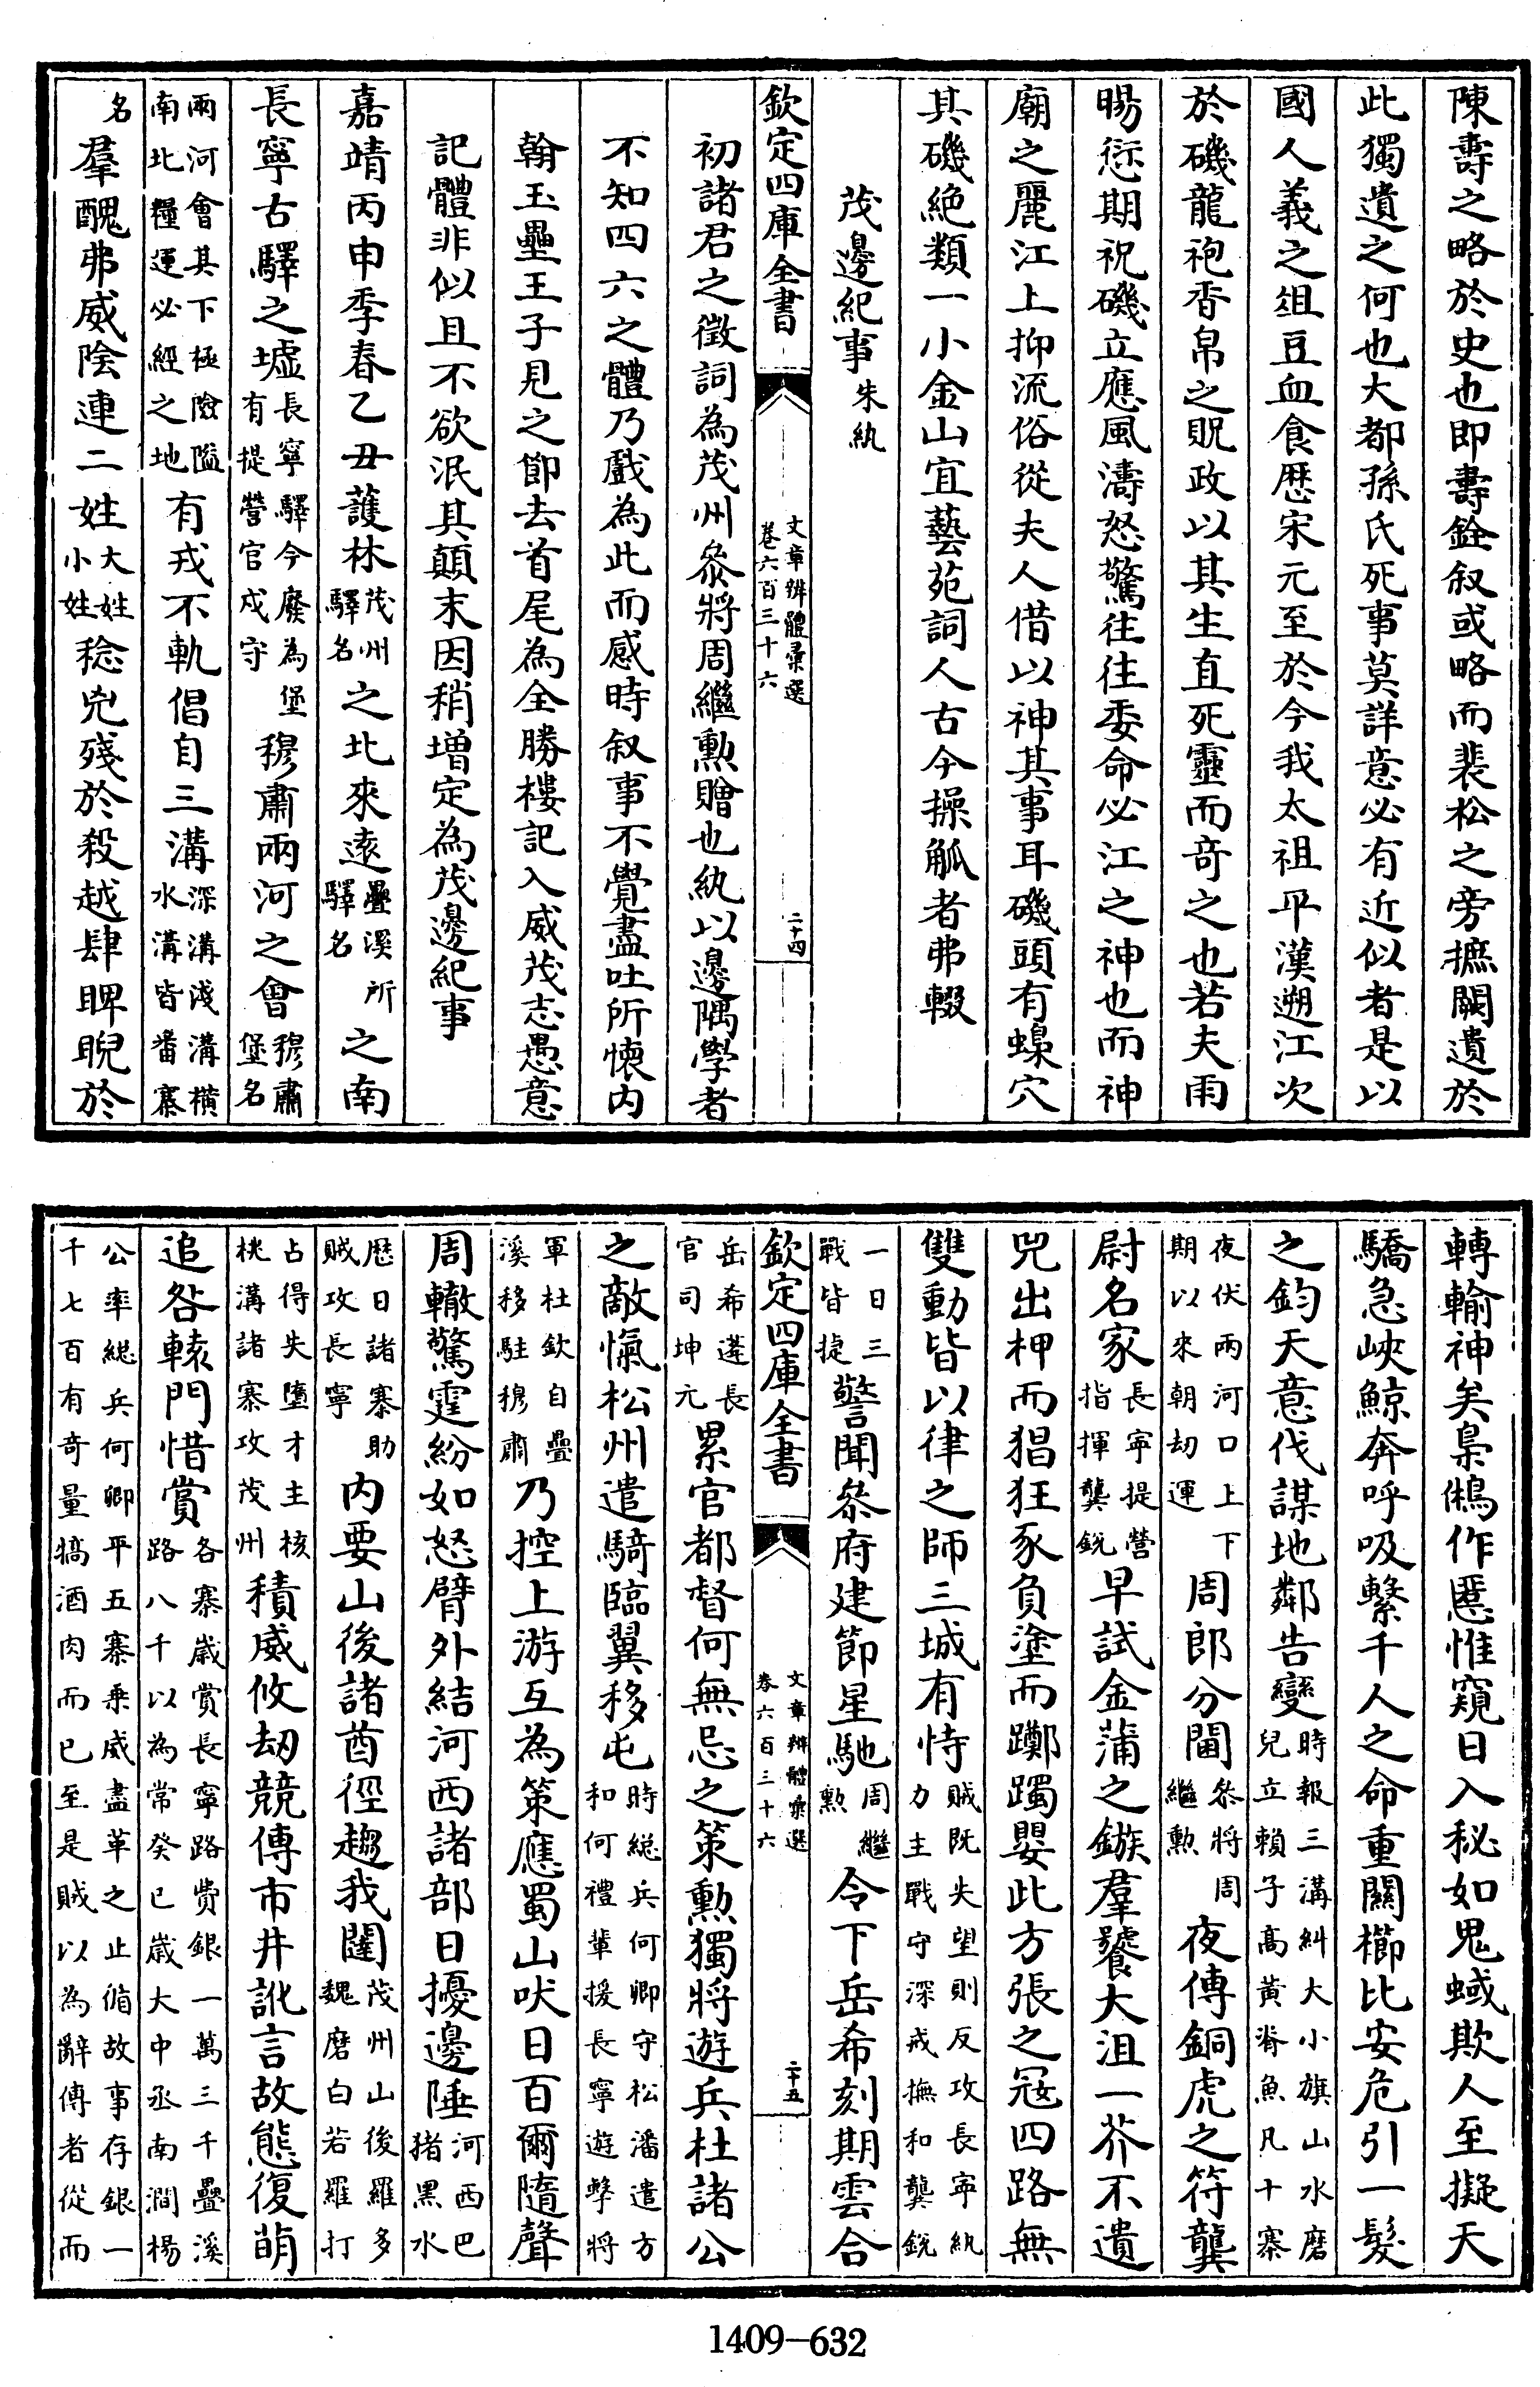 陳壽之略於史也即壽銓叙或略而裴松之旁摭闕遺於
此獨遺之何也大都孫氏死事莫詳意必有近似者是以
國人義之俎豆血食歴宋元至於今我太祖平漢遡江次
於磯龍袍香帛之貺政以其生直死靈而竒之也若夫雨
暘愆期祝磯立應風濤怒驚徃徃委命必江之神也而神
廟之麗江上抑流俗從夫人借以神其事耳磯頭有蟂穴
其磯絶類一小金山宜藝苑詞人古今操觚者弗輟
茂邊紀事 朱紈
欽定四庫全書 文章辨體彙選 卷六百三十六 二十四
初諸君之徵詞為茂州叅將周繼勲贈也紈以邊隅學者
不知四六之體乃戲為此而感時叙事不覺盡吐所懷内
翰玉壘王子見之節去首尾為全勝樓記入威茂志愚意
記體非似且不欲泯其顛末因稍增定為茂邊紀事
嘉靖丙申季春乙丑䕶林茂州驛名之北來遠疊溪所驛名之南
長寧古驛之墟長寧驛今廢為堡有提營官戍守穆肅兩河之會穆肅堡名
兩河會其下極險隘南北糧運必經之地有戎不軌倡自三溝深溝淺溝橫水溝皆番寨
名羣醜弗威隂連二姓大姓小姓稔兇殘於殺越肆睥睨於
轉輸神矣梟鵂作慝惟窺日入秘如鬼蜮欺人至擬天
驕急峽鯨奔呼吸繫千人之命重關櫛比安危引一髮
之鈞天意伐謀地鄰告變時報三溝糾大小旗山水磨兒立賴子高黃脊魚凡十寨
夜伏兩河口上下期以來朝刼運周郎分閫叅將周繼勲夜傳銅虎之符龔
尉名家長寧提營指揮龔銳早試金蒲之鏃羣饕大沮一芥不遺
兕出柙而猖狂豕負塗而躑躅嬰此方張之冦四路無
雙動皆以律之師三城有恃賊既失望則反攻長寧紈力主戰守深戒撫和龔銳
一日三戰皆捷警聞叅府建節星馳周繼勲令下岳希刻期雲合
欽定四庫全書 文章辨體彙選 卷六百三十六 二十五
岳希蓬長官司坤元累官都督何無忌之策勲獨將遊兵杜諸公
之敵愾松州遣騎臨翼移屯時總兵何卿守松潘遣方和何禮輩援長寧遊擊將
軍杜欽自疊溪移駐穆肅乃控上游互為策應蜀山吠日百爾隨聲
周轍驚霆紛如怒臂外結河西諸部日擾邊陲河西巴猪黑水
歴日諸寨助賊攻長寧内要山後諸酋徑趨我闥茂州山後羅多魏磨白若羅打
占得失墮才主核桃溝諸寨攻茂州積威攸刼競傳市井訛言故態復萌
追咎轅門惜賞各寨歳賞長寧路費銀一萬三千疊溪路八千以為常癸已歳大中丞南澗楊
公率總兵何卿平五寨乗威盡革之止循故事存銀一千七百有竒量犒酒肉而已至是賊以為辭傳者從而
1409–632